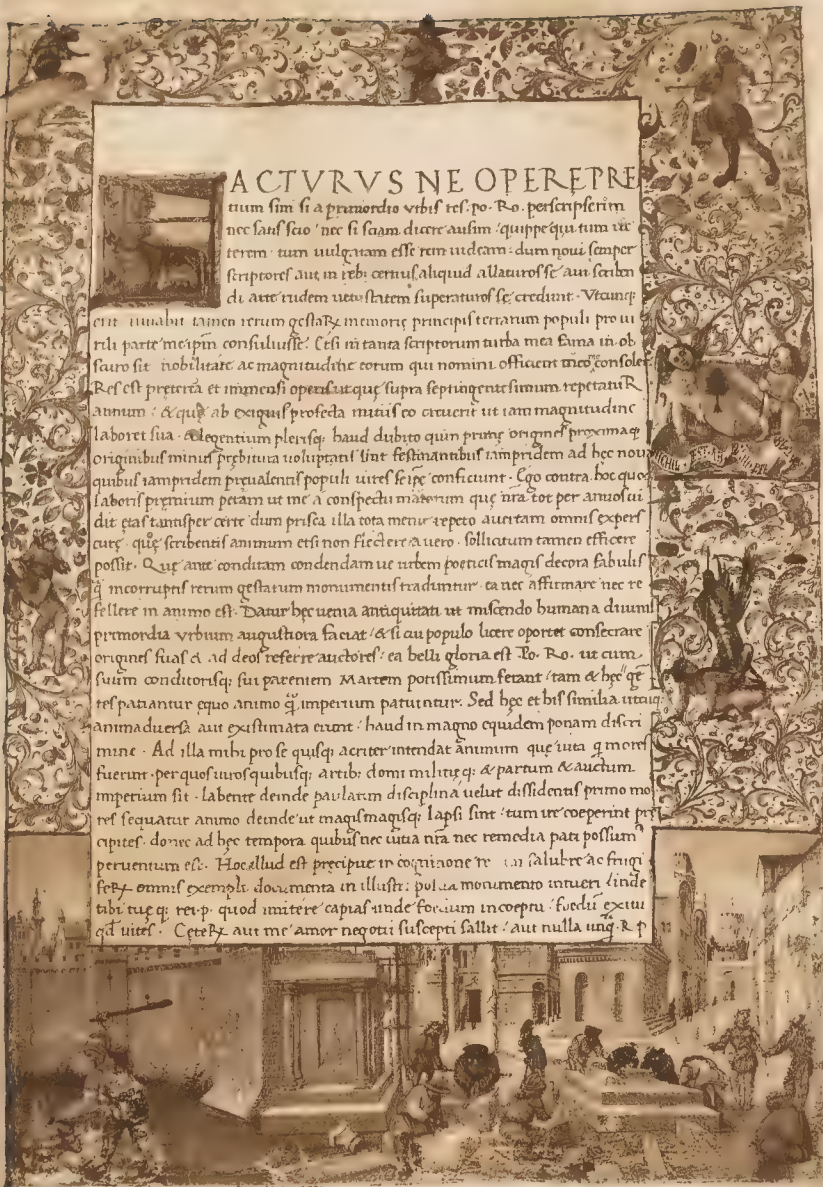 FACTVRVS NE OPERĘPRE
tium sim si a primordio vrbis res. po. Ro. perscripserim
nec satis scio nec si sciam dicere ausim quippe qui tum ve
terem tum uulgatam esse rem uideam: dum noui semper
scriptores aut in reb; certius aliquid allaturos se aut scriben
di arte rudem uetustatem superaturos se credunt. Vtcunq;
erit iuuabit tamen rerum gestaꝝ memorię principis terrarum populi pro ui
rili parte me ipm consuluisse. Etsi in tanta scriptorum turba mea fama in ob
scuro sit nobilitate ac magnitudine eorum qui nomini officient meo consoler
Res est pręterea et immensi operis ut quę supra septingentesimum repetatuR
annum: & quę ab exiguis profecta initiis eo creuerit ut iam magnitudine
laboret sua. & legentium plerisq; haud dubito quin primę origines proximaq;
originibus minus prębitura uoluptatis sint festinantibus iampridem ad hęc noua
quibus iampridem pręualentis populi uires se ipę conficiunt. Ego contra hoc quoq;
laboris pręmium petam ut me a conspectu malorum quę nra tot per annos ui
dit ętas tantisper certe dum prisca illa tota mente repeto auertam omnis expers
curę. quę scribentis animum etsi non flectere a uero. sollicitum tamen efficere
possit. Quę ante conditam condendam ue urbem poeticis magis decora fabulis
q̄ incorruptis rerum gestarum monumentis traduntur. ea nec affirmare nec re
fellere in animo est. Datur hęc uenia antiquitati ut miscendo humana diuinis
primordia vrbium augustiora faciat: & si cui populo licere oportet consecrare
origines suas & ad deos referre auctores: ea belli gloria est Po. Ro. ut cum
suum conditorisq; sui parentem Martem potissimum ferant: tam & hęc gē
tes patiantur equo animo q̄ imperium patiuntur. Sed hęc et his similia utcuq;
animaduersa aut existimata erunt: haud in magno equidem ponam discri
mine. Ad illa mihi pro se quisq; acriter intendat animum quę uita q mores
fuerint. per quos uiros quibusq; artib; domi militięq; & partum & auctum
imperium sit. labente deinde paulatim disciplina velut dissidentis primo mo
res sequatur animo deinde ut magis magisq; lapsi sint: tum ire coeperint prę
cipites. donec ad hęc tempora quibus nec uitia nra nec remedia pati possum
peruentum est. Hoc illud est pręcipue in cognitione re salubre ac frugi
feꝝ omnis exempli documenta in illustri posita monumento intueri: inde
tibi tuęq; rei.p. quod imitere capias inde foedum inceptu: foedū exitu
qd uites. Cęteꝝ aut me amor negotii suscepti fallit: aut nulla unq̄. R p